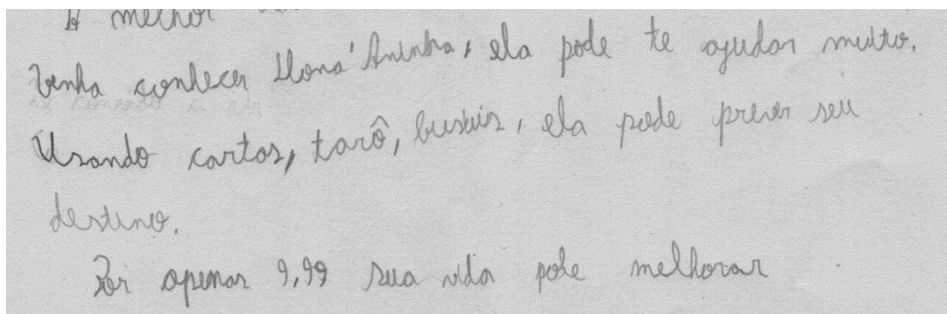 A melhor
Venha conhecer Dona Aninha, ela pode te ajudar muito.
Usando cartas, tarô, busuis, ela pode prever seu
destino.
Por apenas 9,99 sua vida pode melhorar